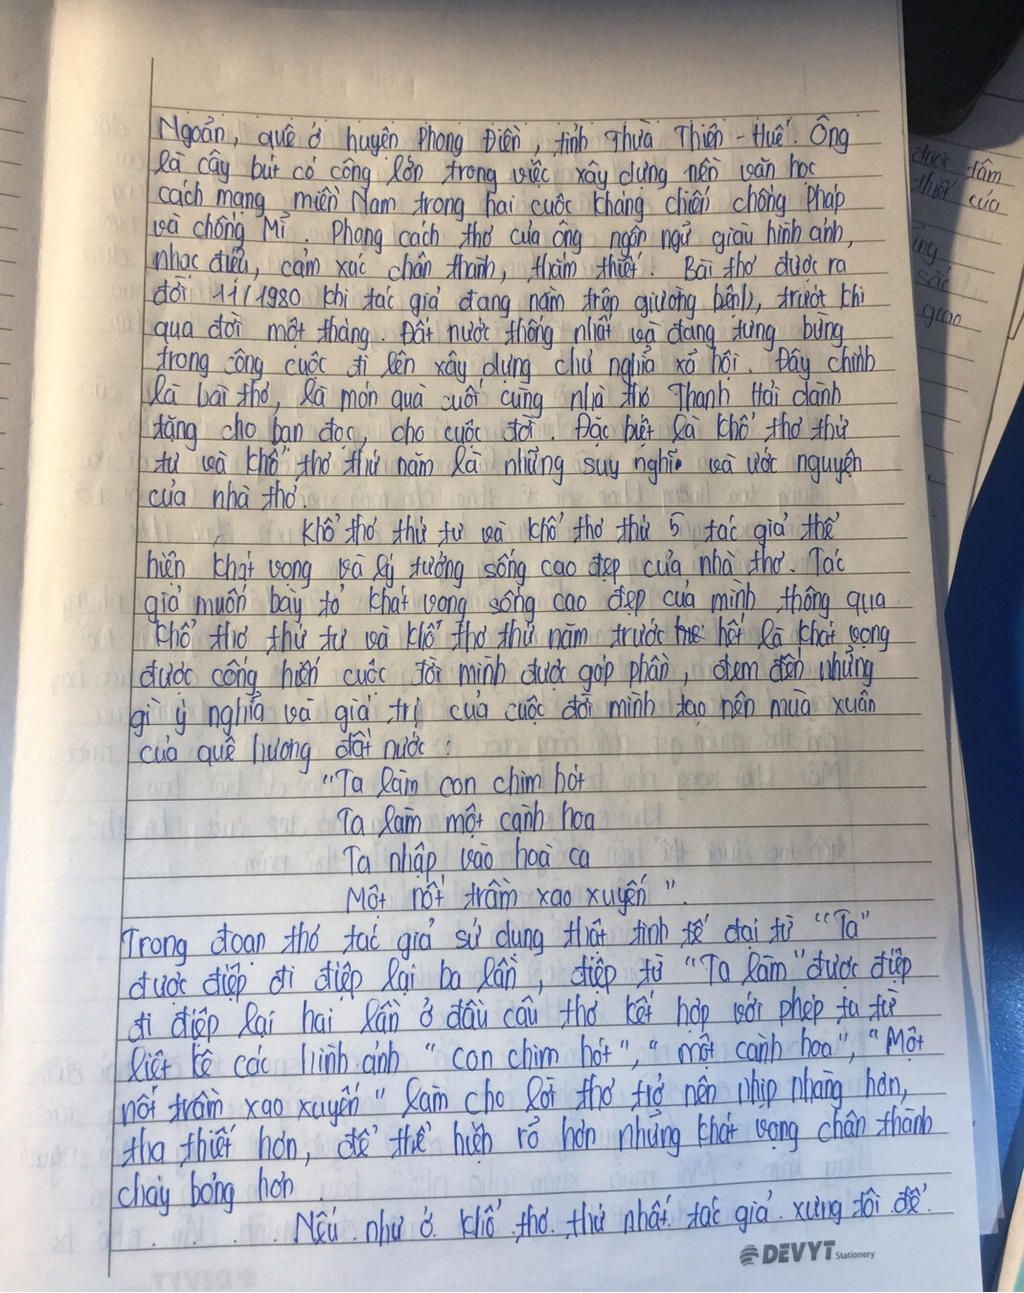 Ngoãn, quê ở huyện Phong Điền, tỉnh Thừa Thiên - Huế. Ông
là cây bút có công lớn trong việc xây dựng nền văn học
cách mạng miền Nam trong hai cuộc kháng chiến chống Pháp
và chống Mĩ. Phong cách thơ của ông ngôn ngữ giàu hình ảnh,
nhạc điệu, cảm xúc chân thành, thắm thiết. Bài thơ được ra
đời 11/1980 khi tác giả đang nằm trên giường bệnh, trước khi
qua đời một tháng. Đất nước thống nhất và đang từng bừng
trong công cuộc đi lên xây dựng chủ nghĩa xã hội. Đây chính
là bài thơ, là món quà cuối cùng nhà thơ Thanh Hải dành
tặng cho bạn đọc, cho cuộc đời. Đặc biệt là khổ thơ thứ
tư và khổ thơ thứ năm là những suy nghĩ và ước nguyện
của nhà thơ.
Khổ thơ thứ tư và khổ thơ thứ 5 tác giả thể
hiện khát vọng và lý tưởng sống cao đẹp của nhà thơ. Tác
giả muốn bày tỏ khát vọng sống cao đẹp của mình thông qua
khổ thơ thứ tư và khổ thơ thứ năm trước hết là khát vọng
được cống hiến cuộc đời mình được góp phần, đem đến những
gì ý nghĩa và giá trị của cuộc đời mình tạo nên mùa xuân
của quê hương đất nước:
"Ta làm con chim hót
Ta làm một cành hoa
Ta nhập vào hoà ca
Một nốt trầm xao xuyến".
Trong đoạn thơ tác giả sử dụng thật tinh tế đại từ "Ta"
được điệp đi điệp lại ba lần, điệp từ "Ta làm" được điệp
đi điệp lại hai lần ở đầu câu thơ kết hợp với phép tu từ
liệt kê các hình ảnh "con chim hót", "một cành hoa", "Một
nốt trầm xao xuyến" làm cho lời thơ trở nên nhịp nhàng hơn,
tha thiết hơn, để thể hiện rõ hơn những khát vọng chân thành
cháy bỏng hơn.
Nếu như ở khổ thơ thứ nhất tác giả xưng tôi để
DEVYT Stationery
được tâm
thiết của
sắc
giao